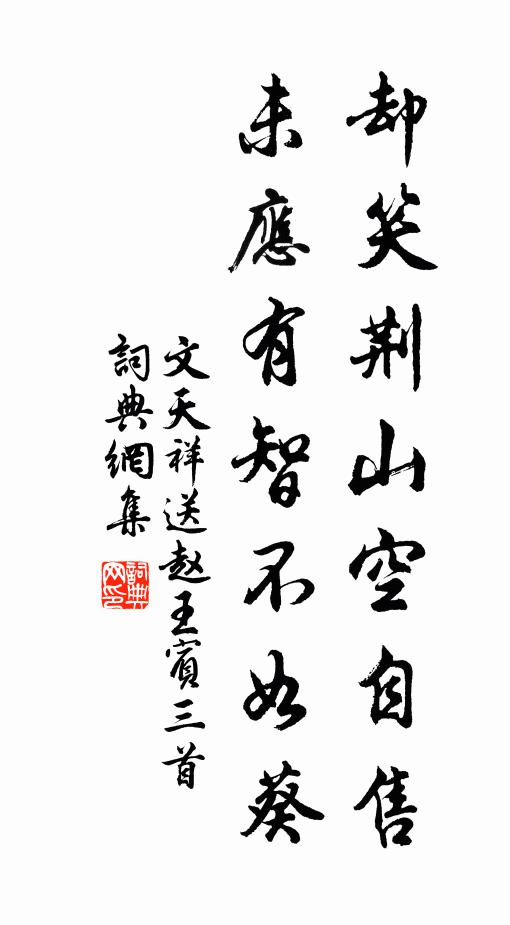 却笑荆山空自售
未應有智不如葵
文天祥送赵王賓三首
詞典網集
詞典
网印